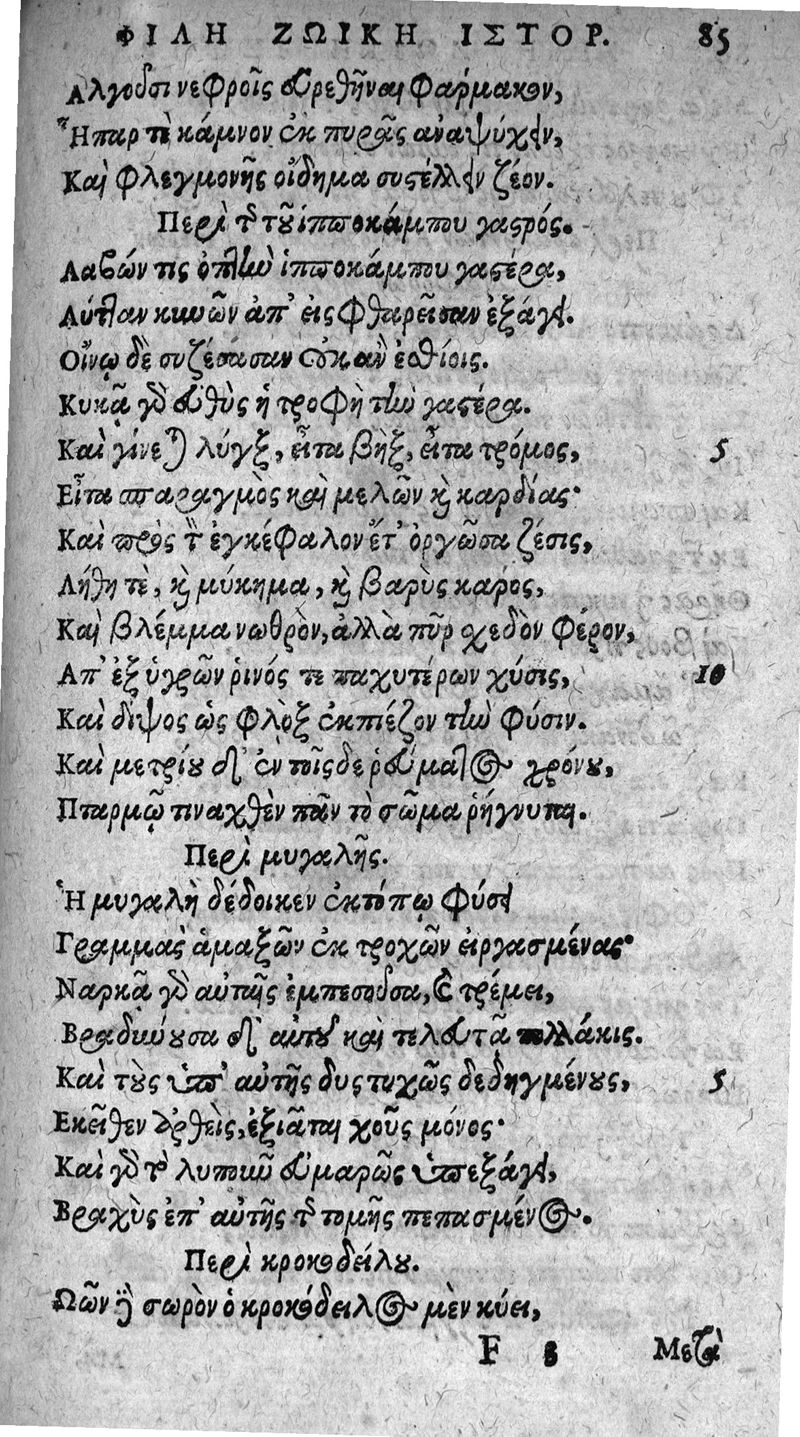 ΦΙΛΗ ΖΩΙΚΗ ΙΣΤΟΡ. 85
Αλγοῦσι νεφροῖς εὑρεθῆναι φάρμακον,
Ἧπάρ τι κάμνον ἐκ πυρᾶς ἀναψύχειν,
Καὶ φλεγμονῆς οἴδημα συστέλλειν ζέον.
Περὶ τῆς τοῦ ἱπποκάμπου γαστρός.
Λαβών τις ὀπτὴν ἱπποκάμπου γαστέρα,
Λύτταν κυνῶν ἀπ' εἰς φθαρεῖσαν ἐξάγει.
Οἴνῳ δὲ συζέσασαν οὐκ ἂν ἐσθίοις.
Κυκᾷ γὸ εὐθὺς ἡ τροφὴ τὴν γαστέρα.
Καὶ γίνεται λύγξ, εἶτα βὴξ, εἶτα τρόμος, 5
Εἶτα σπαραγμὸς καὶ μελῶν καὶ καρδίας·
Καὶ πρὸς τὸν ἐγκέφαλον ἔτ' ὀργῶσα ζέσις,
Λήθη τὲ, καὶ μύκημα, καὶ βαρὺς κάρος,
Καὶ βλέμμα νωθρὸν, ἀλλὰ πῦρ σχεδὸν φέρον,
Απ' ἐξ ὑγρῶν ῥινός τε παχυτέρων χύσις, 10
Καὶ δίψος ὡς φλὸξ ἐκπιέζον τὴν φύσιν.
Καὶ μετρίου δ' ἐν τοῖς δε ῥεύματος χρόνου,
Πταρμῷ τιναχθὲν πᾶν τὸ σῶμα ῥήγνυται.
Περὶ μυγαλῆς.
Ἡ μυγαλὴ δέδοικεν ἐκτόπῳ φύσει
Γραμμὰς ἁμαξῶν ἐκ τροχῶν εἰργασμένας·
Ναρκᾷ γὸ αὐταῖς ἐμπεσοῦσα, καὶ τρέμει,
Βραδύνουσα δ' αὐτοῦ καὶ τελευτᾷ πολλάκις.
Καὶ τοὺς ὑπ' αὐτῆς δυστυχῶς δεδηγμένους, 5
Εκεῖθεν ἀρθεὶς, ἐξιᾶται χοῦς μόνος·
Καὶ γὸ τὸ λυποῦν εὐμαρῶς ὑπεξάγει,
Βραχὺς ἐπ' αὐτῆς τῆς τομῆς πεπασμένος.
Περὶ κροκοδείλου.
Ωῶν γὸ σωρὸν ὁ κροκόδειλος μὲν κύει,
F 3 Μετὰ